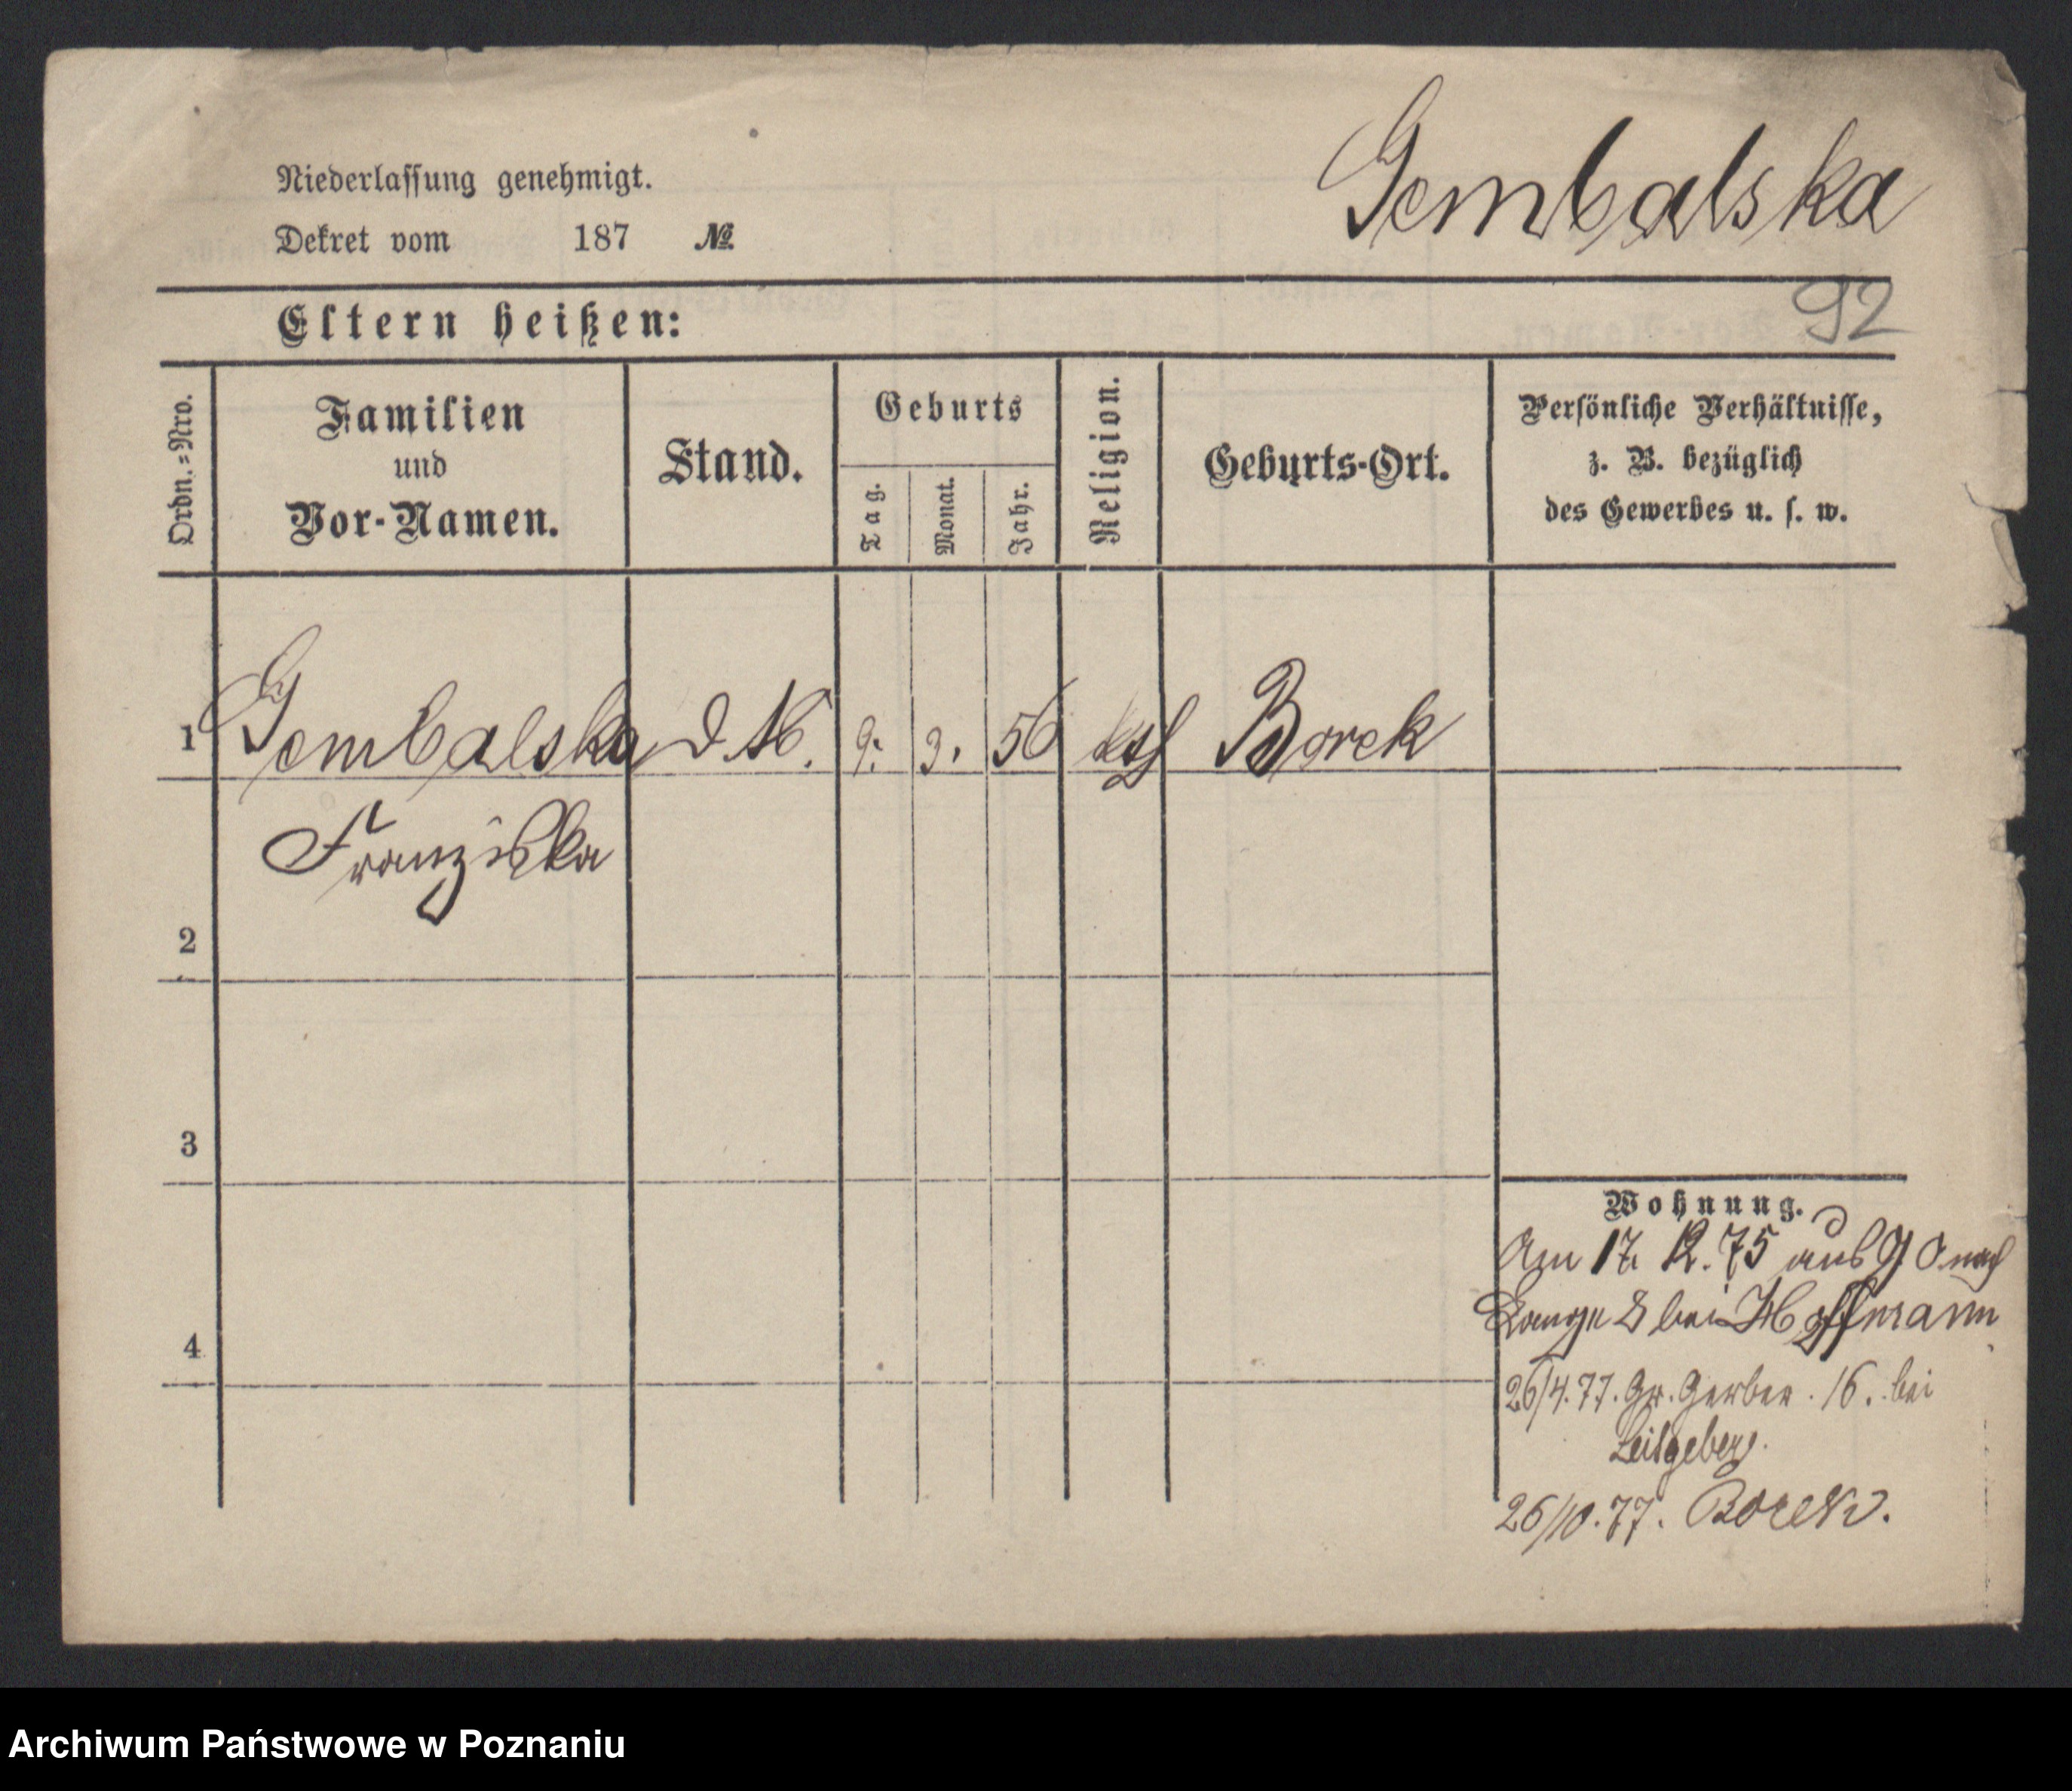 Gembalska
Niederlassung genehmigt.
Dekret vom 187 №
92
Eltern heißen:
Ordn.=Nro.
Familien
und
Vor-Namen.
Stand.
Geburts
Tag.
Monat.
Jahr.
Religion.
Geburts-Ort.
Persönliche Verhältnisse,
z. B. bezüglich
des Gewerbes u. s. w.
1 Gembalska d. M. 9. 3. 56 kath Borek
Franziska
2
3
4
Wohnung.
Am 17. 12. 75 aus nach
Lange 8 bei Hoffmann
26/4. 77. Gr. Gerber. 16. bei
Leitgeber.
26/10. 77. Borek.
Archiwum Państwowe w Poznaniu